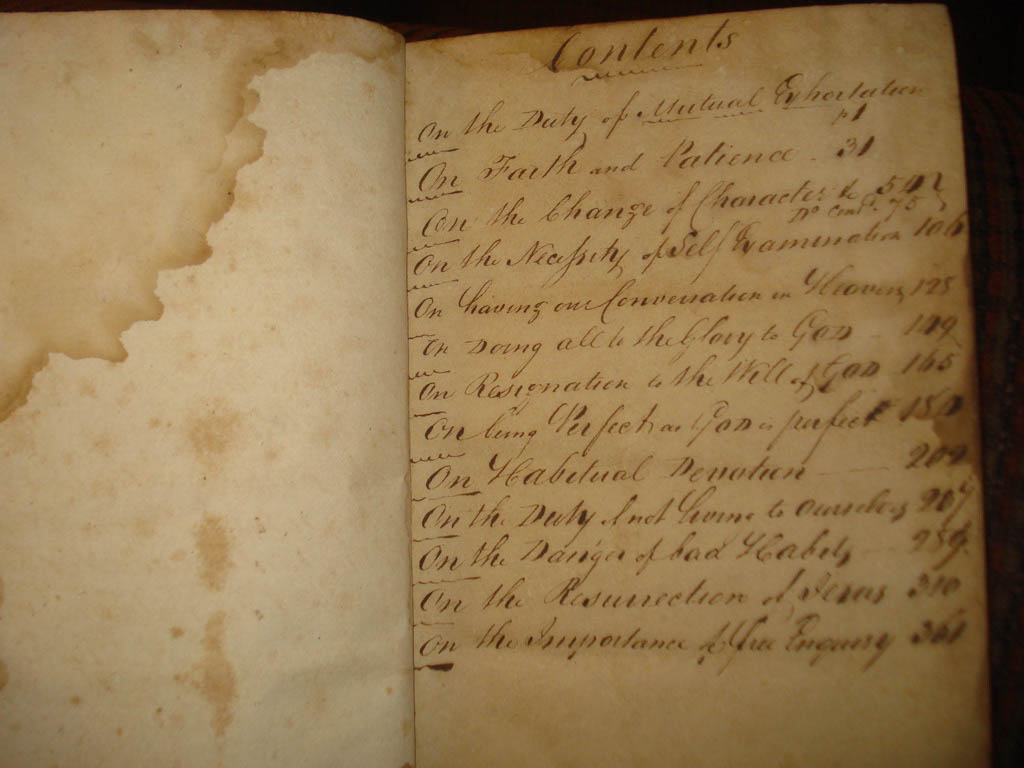 Contents
On the Duty of Mutual Exhortation
p 1
On Faith and Patience - 31
On the Change of Character &c 54
Do Cont. 75
On the Necessity of Self Examination 106
On having our Conversation in Heaven 125
On Doing all to the Glory to God - 149
On Resignation to the Will of God 165
On being Perfect as God is perfect
On Habitual Devotion 209
On the Duty of not living to ourselves
On the Danger of bad Habits
On the Resurrection of Jesus 310
On the Importance of free Enquiry 361